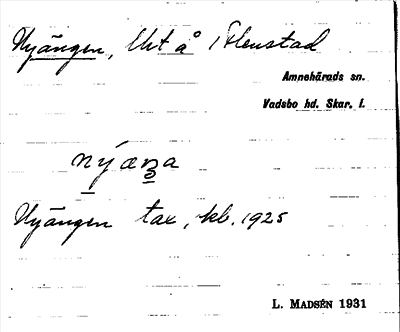 Nyängen, Lht å Ålenstad
Amnehärads sn.
Vadsbo hd. Skar. l.
nýæŋa
Nyängen tax, kb. 1925
L. MADSÉN 1931